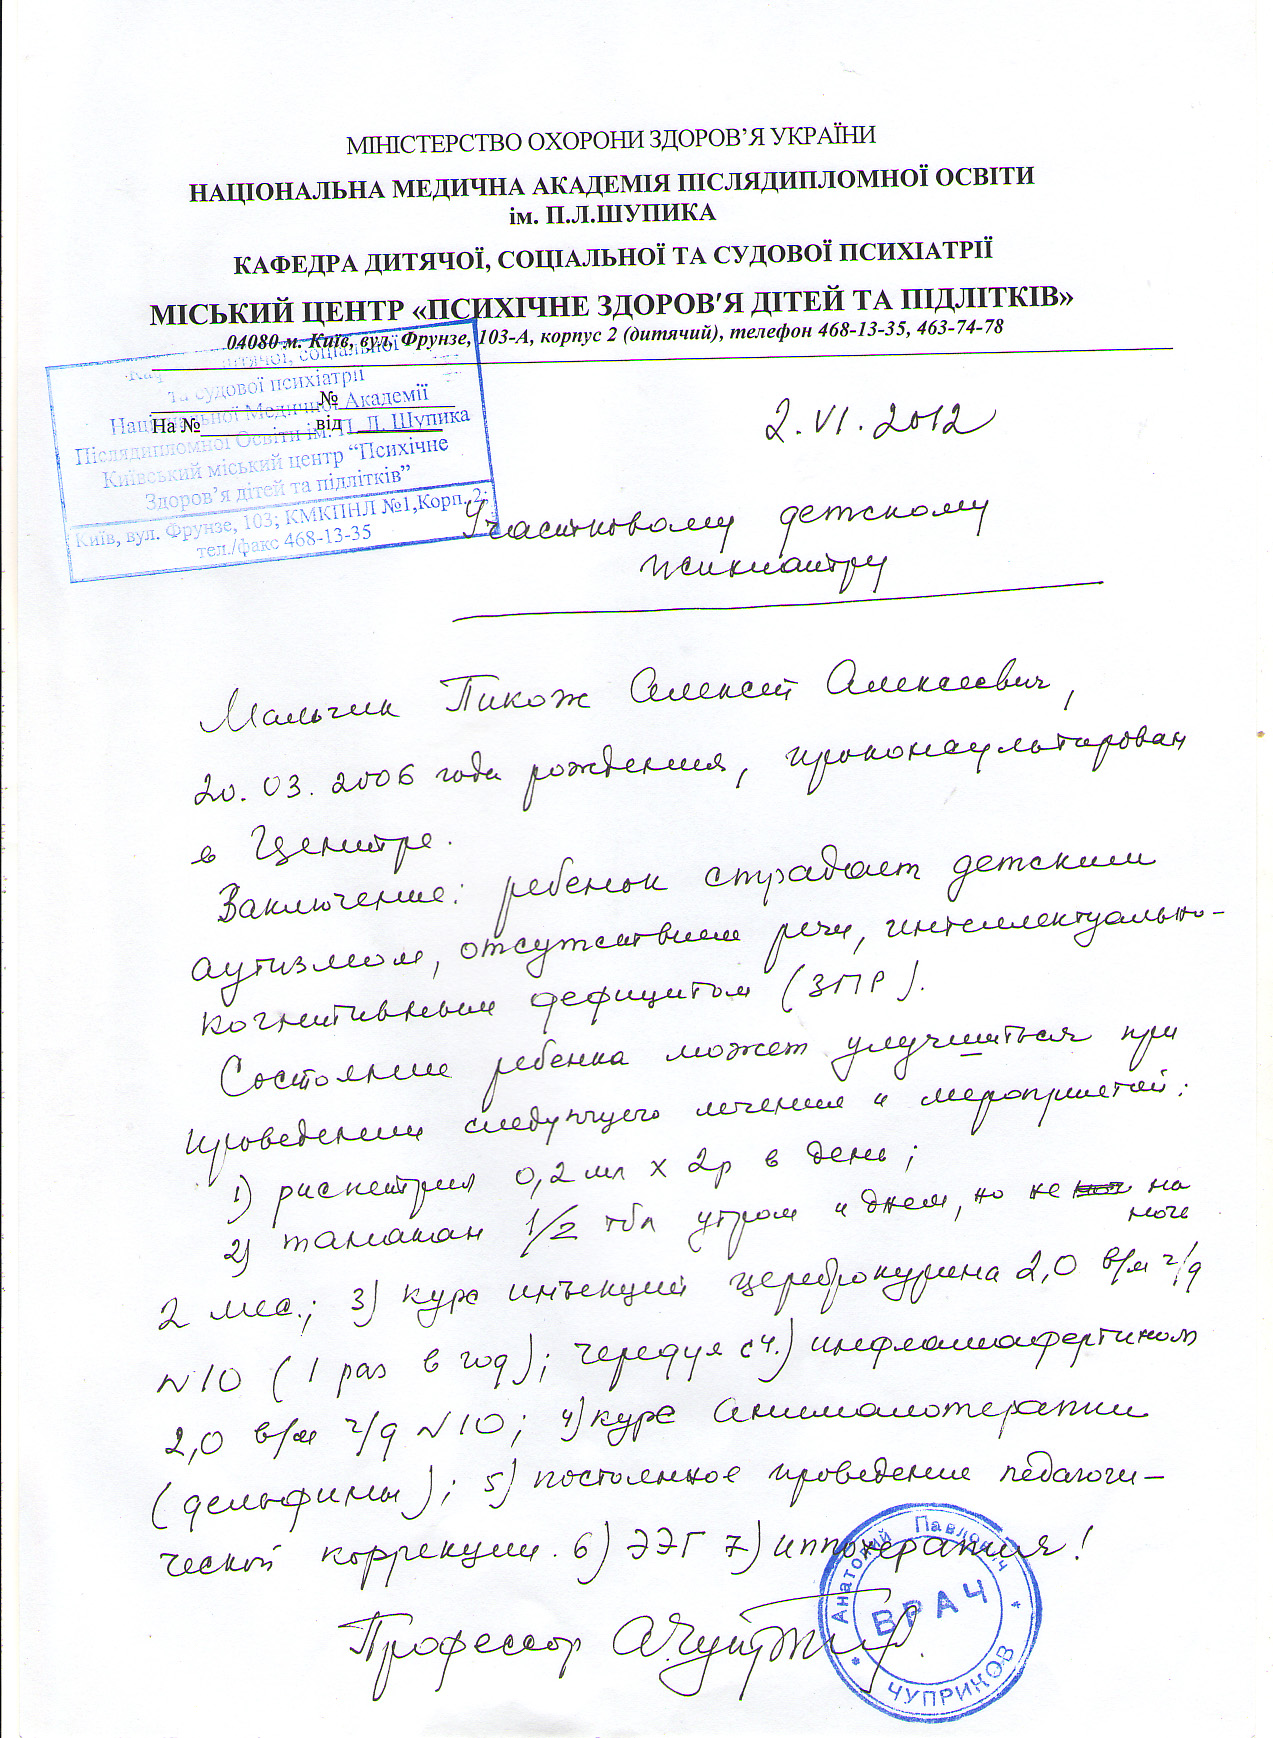 МІНІСТЕРСТВО ОХОРОНИ ЗДОРОВ’Я УКРАЇНИ
НАЦІОНАЛЬНА МЕДИЧНА АКАДЕМІЯ ПІСЛЯДИПЛОМНОЇ ОСВІТИ
ім. П.Л.ШУПИКА
КАФЕДРА ДИТЯЧОЇ, СОЦІАЛЬНОЇ ТА СУДОВОЇ ПСИХІАТРІЇ
МІСЬКИЙ ЦЕНТР «ПСИХІЧНЕ ЗДОРОВ'Я ДІТЕЙ ТА ПІДЛІТКІВ»
04080 м. Київ, вул. Фрунзе, 103-А, корпус 2 (дитячий), телефон 468-13-35, 463-74-78
дитячої, соціальної
та судової психіатрії
Національної Медичної Академії
Післядипломної Освіти ім. П. Л. Шупика
Київський міський центр “Психічне
Здоров’я дітей та підлітків”
Київ, вул. Фрунзе, 103; КМКПНЛ №1,Корп. 2;
тел./факс 468-13-35
№
На № від
2.VI.2012
Участковому детскому
психиатру
Мальчик Пикож Алексей Алексеевич,
20.03.2006 года рождения, проконсультирован
в Центре.
Заключение: ребенок страдает детским
аутизмом, отсутствием речи, интеллектуально-
когнитивным дефицитом (ЗПР).
Состояние ребенка может улучшиться при
проведении следующего лечения и мероприятий:
1) риспетрил 0,2 мл х 2р в день;
2) таланан 1/2 тбл утром и днем, но не на
ночь
2 мес.; 3) курс инъекций цереброкурина 2,0 в/м ч/д
N10 (1 раз в год); чередуя с 4.) инфламафертином
2,0 в/м ч/д N10; 4) курс анималотерапии
(дельфины); 5) постоянное проведение педагоги-
ческой коррекции. 6) ЭЭГ 7) иппотерапия!
Профессор А.Чуприков
Анатолий Павлович
ВРАЧ
ЧУПРИКОВ